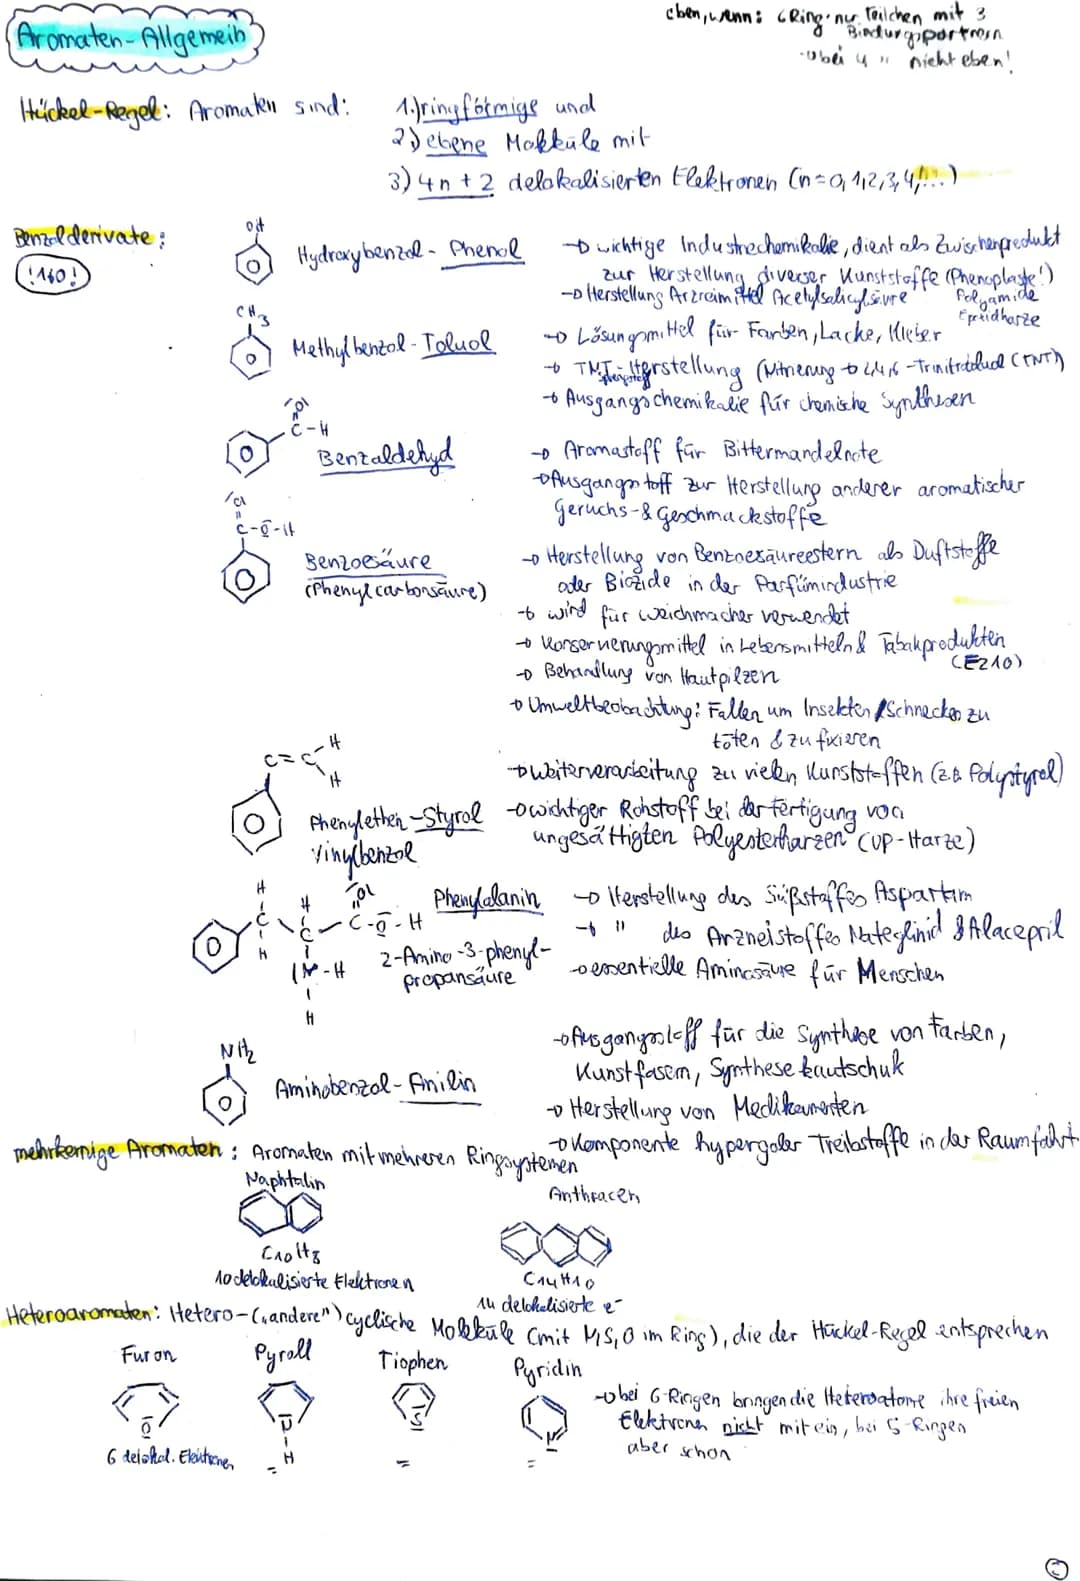 Aromaten-Allgemein
eben, wenn: 6 Ring: nur Teilchen mit 3
Bindungspartnern
bei 4 " nicht eben!
Hückel-Regel: Aromaten sind: 1.) ringförmige und
2) ebene Moleküle mit
3) 4n+2 delokalisierten Elektronen (n=0,1,2,3,4,...)
Benzolderivate:
!160!
OH
Hydroxybenzol - Phenol
→ wichtige Industriechemikalie, dient als Zwischenprodukt
zur Herstellung diverser Kunststoffe (Phenoplaste!)
Polyamide
Epoxidharze
→ Herstellung Arzneimittel Acetylsalicylsäure
CH3
Methylbenzol - Toluol
→ Lösungsmittel für Farben, Lacke, Kleber
→ TNT-Herstellung (Nitrierung → 2,4,6-Trinitrotoluol (TNT))
→ Ausgangschemikalie für chemische Synthesen
O
C-H
Benzaldehyd
→ Aromastoff für Bittermandelnote
→ Ausgangsstoff zur Herstellung anderer aromatischer
Geruchs- & Geschmackstoffe
O
C-O-H
Benzoesäure
(Phenylcarbonsäure)
→ Herstellung von Benzoesäureestern als Duftstoffe
oder Biozide in der Parfümindustrie
→ wird für Weichmacher verwendet
→ Konservierungsmittel in Lebensmitteln & Tabakprodukten
(E210)
→ Behandlung von Hautpilzen
→ Umweltbeobachtung: Fallen um Insekten/Schnecken zu
töten & zu fixieren
C=C
H
H
Phenylethen - Styrol
Vinylbenzol
→ Weiterverarbeitung zu vielen Kunststoffen (z.B. Polystyrol)
→ wichtiger Rohstoff bei der Fertigung von
ungesättigten Polyesterharzen (UP-Harze)
H H O
C C C-O-H
H N-H
H
Phenylalanin
2-Amino-3-phenyl-
propansäure
→ Herstellung des Süßstoffes Aspartam
→ " des Arzneistoffes Nateglinid & Alacepril
→ essentielle Aminosäure für Menschen
NH2
Aminobenzol - Anilin
→ Ausgangsstoff für die Synthese von Farben,
Kunstfasern, Synthesekautschuk
→ Herstellung von Medikamenten
→ Komponente hypergoler Treibstoffe in der Raumfahrt
mehrkernige Aromaten: Aromaten mit mehreren Ringsystemen
Naphtalin
Anthracen
C10H8
C14H10
10 delokalisierte Elektronen
14 delokalisierte e-
Heteroaromaten: Hetero-("andere") cyclische Moleküle (mit N,S,O im Ring), die der Hückel-Regel entsprechen
Furan
Pyroll
Tiophen
Pyridin
O
N
H
S
N
6 delokal. Elektronen
=
=
=
→ bei 6-Ringen bringen die Heteroatome ihre freien
Elektronen nicht mit ein, bei 5-Ringen
aber schon